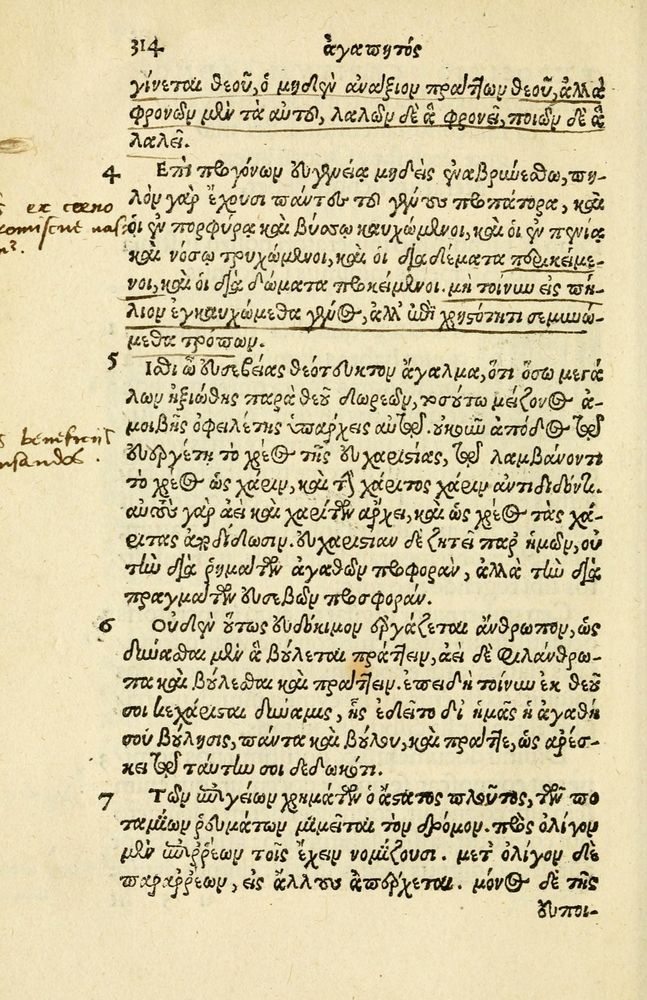 314 ἀγαπητός
γίνεται θεοῦ, ὁ μηδὲν ἀνάξιον πράττων θεοῦ, ἀλλὰ
φρονῶν μὲν τὰ αὐτοῦ, λαλῶν δὲ ἃ φρονεῖ, ποιῶν δὲ ἃ
λαλεῖ.
4 Ἐπὶ προγόνων εὐγενείᾳ μηδεὶς ἐναβρυνέσθω, πη-
λὸν γὰρ ἔχουσι πάντες τοῦ γένους προπάτορα, καὶ
οἱ ἐν πορφύρᾳ καὶ βύσσῳ καυχώμενοι, καὶ οἱ ἐν πενίᾳ
καὶ νόσῳ τρυχώμενοι, καὶ οἱ διαδήματα περικείμε-
νοι, καὶ οἱ διὰ δώματα προκείμενοι. μὴ τοίνυν εἰς πή-
λινον ἐγκαυχώμεθα γένος, ἀλλ' ἐπὶ χρηστότητι σεμνυνώ-
μεθα τρόπων.
5 Ἴσθι ὦ εὐσεβείας θεότευκτον ἄγαλμα, ὅτι ὅσῳ μεγά
λων ἠξιώθης παρὰ θεοῦ δωρεῶν, τοσούτῳ μείζονος ἀ-
μοιβῆς ὀφειλέτης ὑπάρχεις αὐτῷ. οὐκοῦν ἀπόδος τῷ
εὐεργέτῃ τὸ χρέος τῆς εὐχαριστίας, τῷ λαμβάνοντι
τὸ χρέος ὡς χάριν, καὶ τῆς χάριτος χάριν ἀντιδιδόντι.
αὐτὸς γὰρ ἀεὶ καὶ χαρίτων ἄρχει, καὶ ὡς χρέος τὰς χά-
ριτας ἀποδίδωσιν. εὐχαριστίαν δὲ ζητεῖ παρ' ἡμῶν, οὐ
τὴν διὰ ῥημάτων ἀγαθῶν προφοράν, ἀλλὰ τὴν διὰ
πραγμάτων εὐσεβῶν προσφοράν.
6 Οὐδὲν οὕτως εὐδόκιμον ἐργάζεται ἄνθρωπον, ὡς
δύνασθαι μὲν ἃ βούλεται πράττειν, ἀεὶ δὲ φιλάνθρω-
πα καὶ βούλεσθαι καὶ πράττειν. ἐπειδὴ τοίνυν ἐκ θεοῦ
σοι κεχάρισται δύναμις, ἧς ἐδεῖτο δι' ἡμᾶς ἡ ἀγαθή
σου βούλησις, πάντα καὶ βούλου, καὶ πρᾶττε, ὡς ἀρέσ-
κει τῷ ταύτην σοι δεδωκότι.
7 Τῶν ἐπιγείων χρημάτων ὁ ἄστατος πλοῦτος, τῶν πο
ταμίων ῥευμάτων μιμεῖται τὸν δρόμον. πρὸς ὀλίγον
μὲν ἐπιρρέων τοῖς ἔχειν νομίζουσι. μετ' ὀλίγον δὲ
παραρρέων, εἰς ἄλλους ἀπέρχεται. μόνος δὲ τῆς
εὐποι-
ex coeno